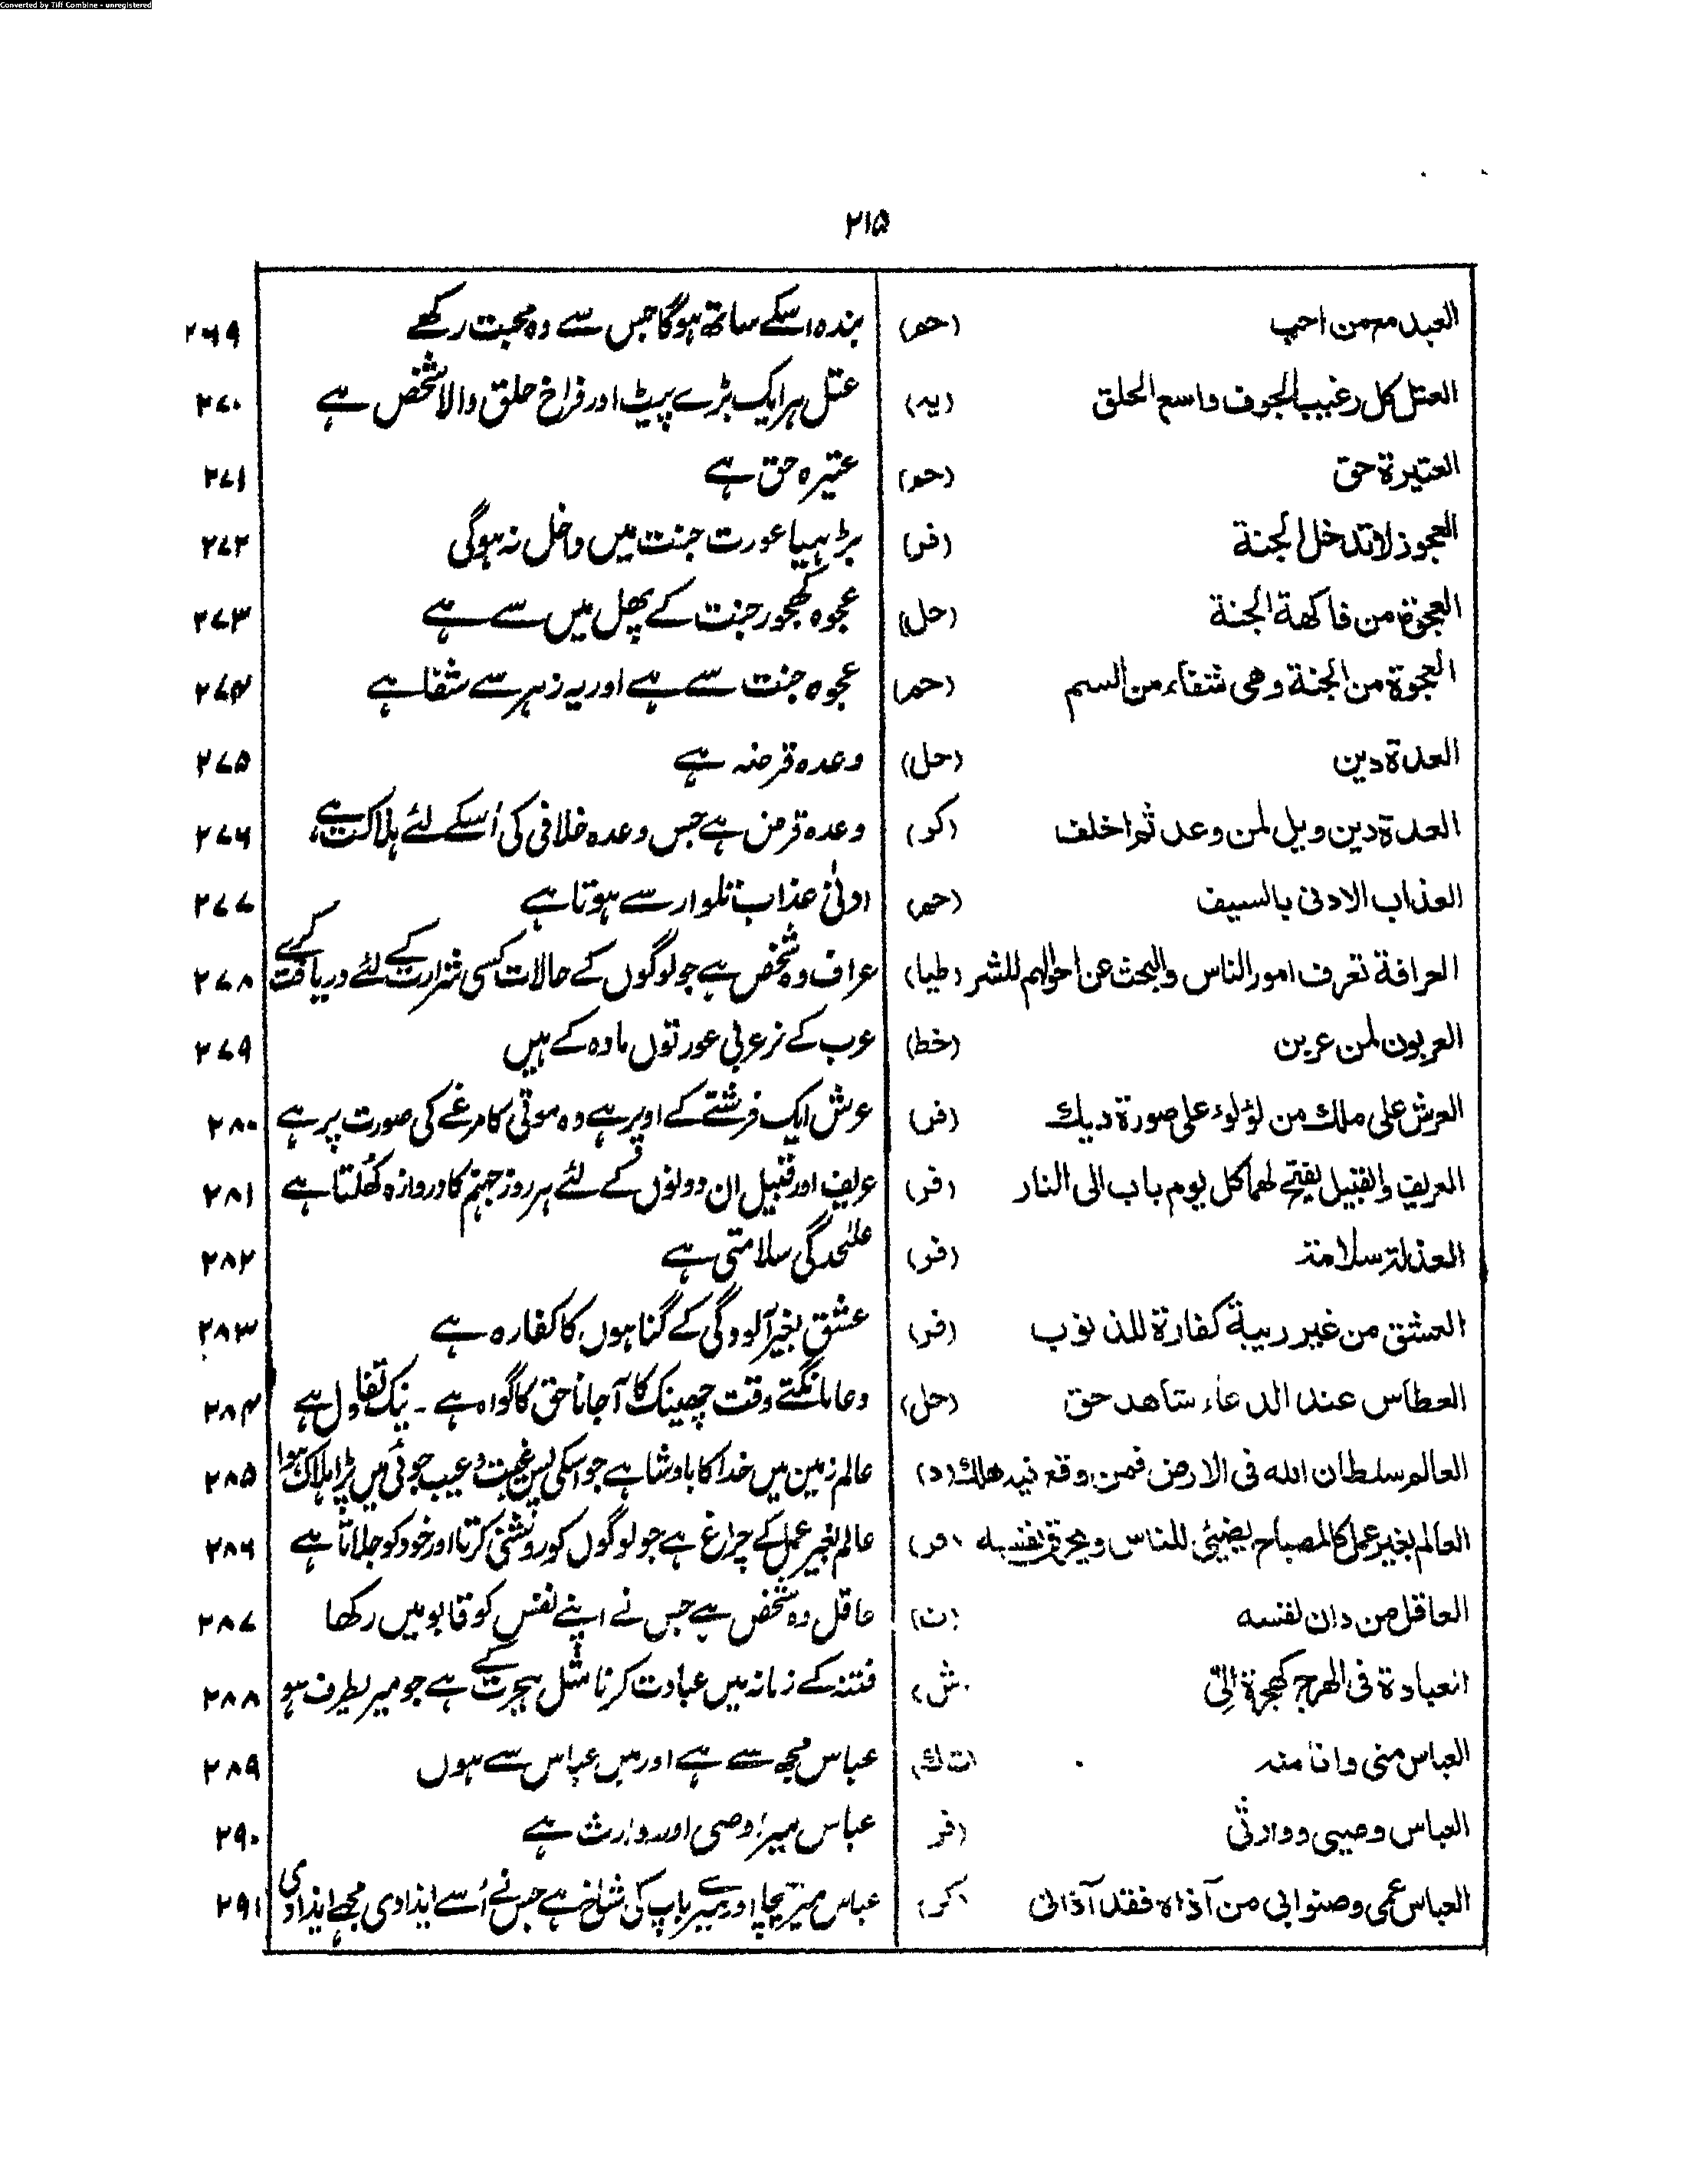 Converted by Tiff Combine - unregistered
۲۱۵
العبد مع من احب (حم) بندہ اسکے ساتھ ہوگا جس سے وہ محبت رکھے ۲۶۹
العتل کل رغیب الجوف واسع الحلق (یہ) عتل ہر ایک بڑے پیٹ اور فراخ حلق والا شخص ہے ۲۷۰
العتیرة حق (حم) عتیرہ حق ہے ۲۷۱
العجوز لا تدخل الجنة (فر) بڑہیا عورت جنت میں داخل نہ ہوگی ۲۷۲
العجوة من فاکهة الجنة (حل) عجوہ کھجور جنت کے پھل میں سے ہے ۲۷۳
العجوة من الجنة وهی شفاء من السم (حم) عجوہ جنت سے ہے اور یہ زہر سے شفا ہے ۲۷۴
العدة دین (حل) وعدہ قرضہ ہے ۲۷۵
العدة دین ویل لمن وعد ثم اخلف (کر) وعدہ قرض ہے جس وعدہ خلافی کی اُسکے لئے ہلاکت ہے ۲۷۶
العذاب الادنی بالسیف (حم) ادنیٰ عذاب تلوار سے ہوتا ہے ۲۷۷
العرافة تعرف امور الناس والبحث عن احوالهم للشر (طیا) عراف وہ شخص ہے جو لوگوں کے حالات کسی شرارت کے لئے دریافت کرے ۲۷۸
العربون لمن عربن (خط) عرب کے نر عربی عورتوں مادہ کے ہیں ۲۷۹
العرش علی ملك من لؤلوء علی صورة دیك (فر) عرش ایک فرشتے کے اوپر ہے وہ موتی کا مرغے کی صورت پر ہے ۲۸۰
العریف والقبیل یفتح لهما کل یوم باب الی النار (فر) عریف اور قبیل ان دونوں کے لئے ہر روز جہنم کا دروازہ کُھلتا ہے ۲۸۱
العذلة سلامة (فر) علٰحدگی سلامتی ہے ۲۸۲
العشق من غیر ریبة کفارة للذنوب (فر) عشق بغیر آلودگی کے گناہوں کا کفارہ ہے ۲۸۳
العطاس عند الدعاء شاهد حق (حل) دعا مانگتے وقت چھینک کا آجانا حق کا گواہ ہے ۔ نیک تفاول ہے ۲۸۴
العالم سلطان الله فی الارض فمن وقع فیه هلك (د) عالم زمین میں خدا کا بادشا ہے جو اسکی پس غیبت و عیب جوئی میں پڑا ہلاک ہوا ۲۸۵
العالم بغیر عمل کالمصباح یضیئی للناس ویحرق نفسه (فر) عالم بغیر عمل کے چراغ ہے جو لوگوں کو روشنی کرتا اور خود کو جلاتا ہے ۲۸۶
العاقل من دان لفسه (ت) عاقل وہ شخص ہے جس نے اپنے نفس کو قابو میں رکھا ۲۸۷
العبادة فی الهرج کهجرة الیّ (ش) فتنہ کے زمانہ میں عبادت کرنا مثل ہجرت کے ہے جو میریطرف ہو ۲۸۸
العباس منی وانا منه (ت ك) عباس مجھ سے ہے اور میں عباس سے ہوں ۲۸۹
العباس وصیی ووارثی (فر عباس میرا وصی اور وارث ہے ۲۹۰
العباس عمی وصنو ابی من آذاه فقد آذانی (کر) عباس میرے چچا اور میرے باپ کی شاخ ہے جس نے اُسے ایذا دی مجھے ایذا دی ۲۹۱